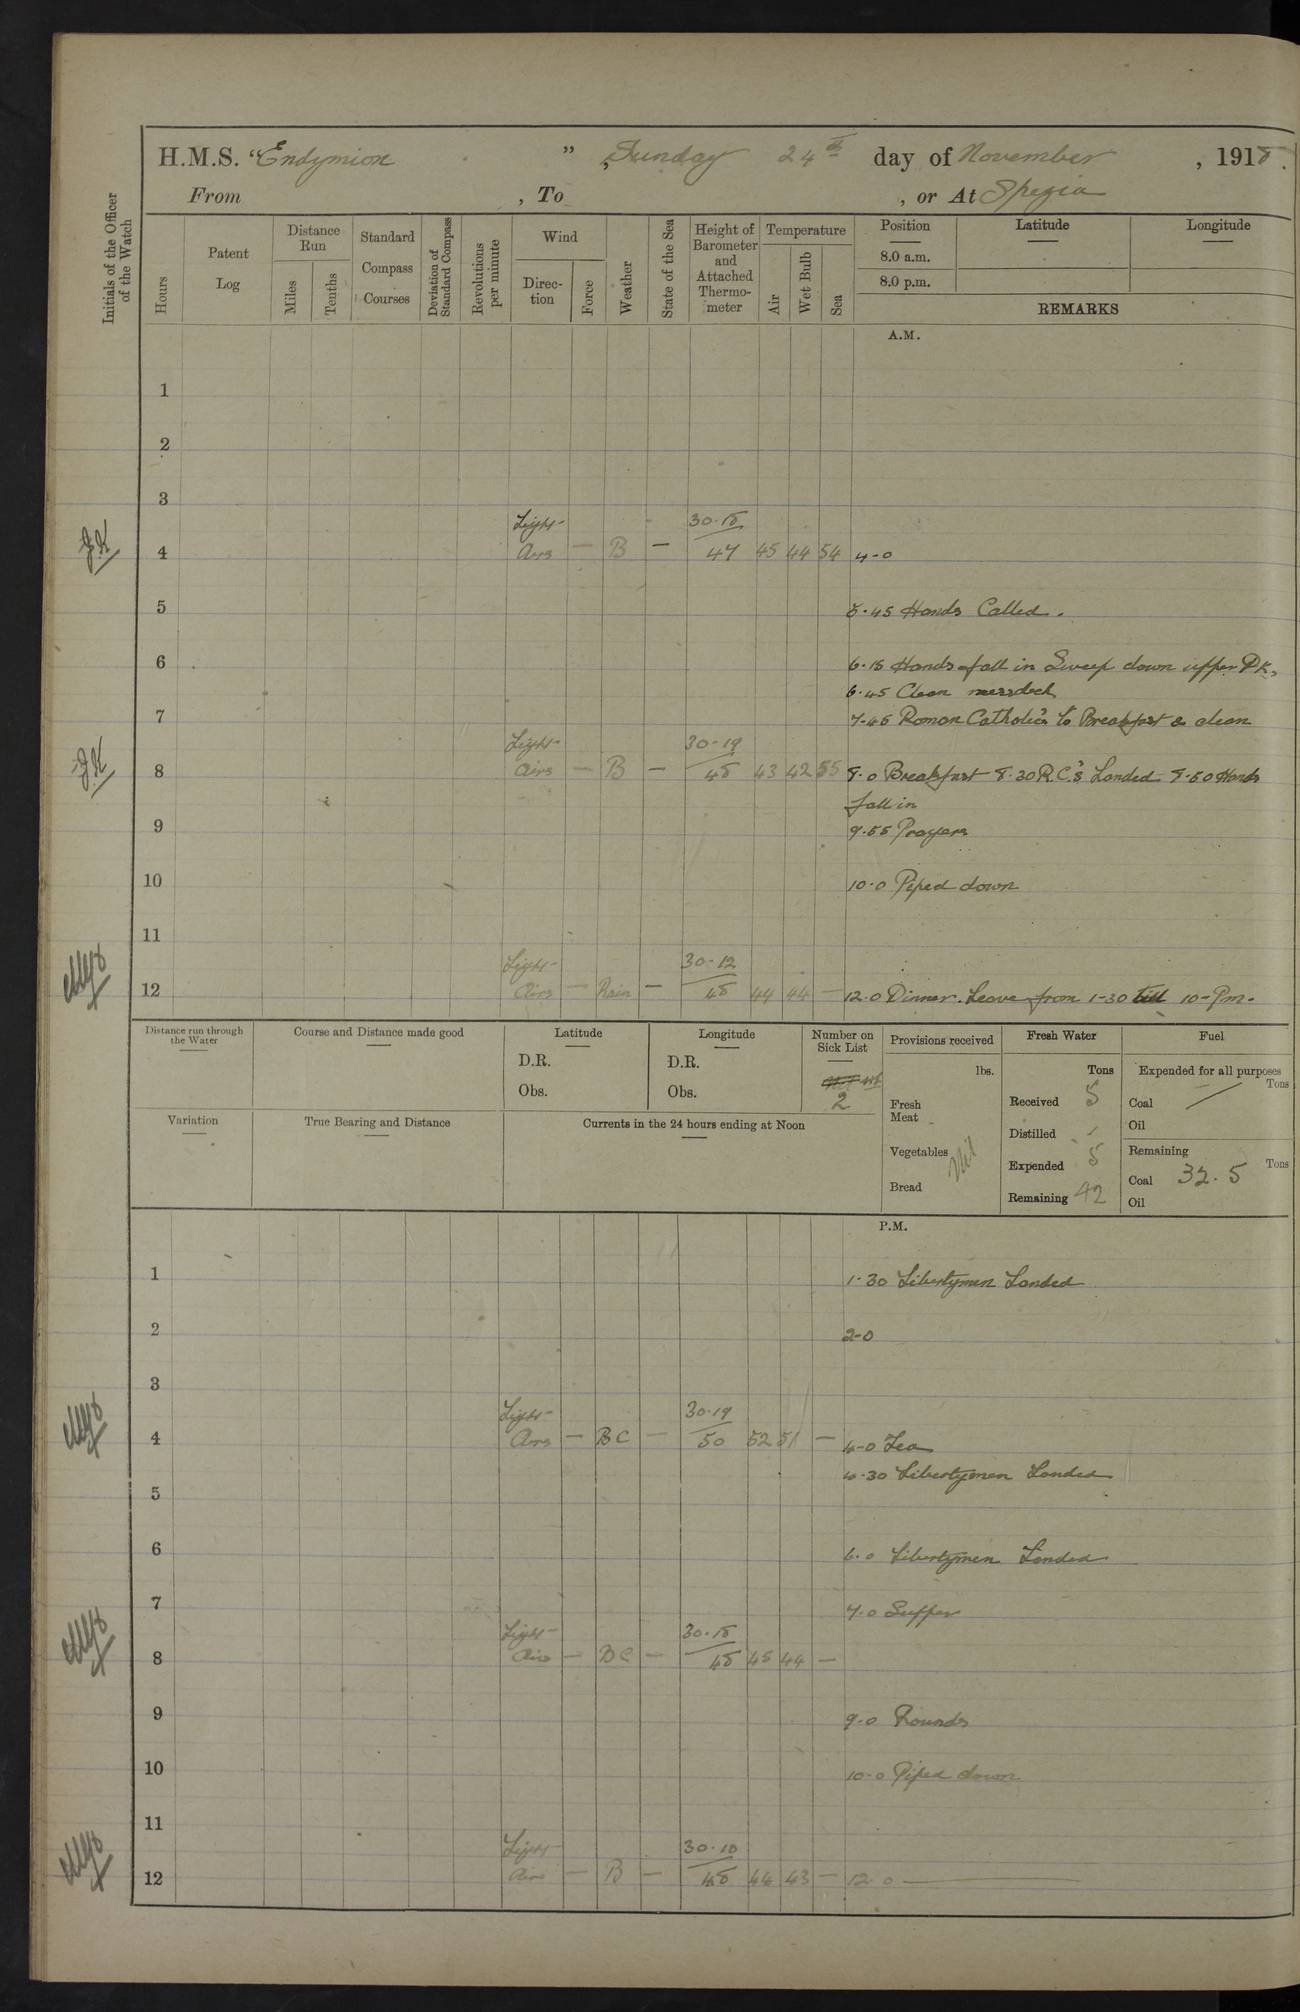 H.M.S. "Endymion", Sunday 24th day of November, 1918.
From , To , or At Spezia
Initials of the Officer of the Watch
Hours
Patent Log
Distance Run
Miles
Tenths
Standard Compass Courses
Deviation of Standard Compass
Revolutions per minute
Wind
Direction
Force
Weather
State of the Sea
Height of Barometer and Attached Thermometer
Temperature
Air
Wet Bulb
Sea
Position
8.0 a.m.
8.0 p.m.
Latitude
Longitude
REMARKS
A.M.
1
2
3
Light 30.18
4 Airs — B — 47 45 44 54 4-0
5 5.45 Hands Called.
6 6.15 Hands fall in Sweep down upper Dk,
6.45 Clean messdeck
7 7.45 Roman Catholics to Breakfast & clean
Light 30-19
8 Airs — B — 48 43 42 55 8.0 Breakfast 8.30 R.C.'s Landed 8.50 Hands
fall in
9 9.55 Prayers
10 10.0 Piped down
11
Light 30-12
12 Airs — Rain — 48 44 44 — 12.0 Dinner. Leave from 1-30 till 10-Pm.
Distance run through the Water
Course and Distance made good
Latitude
D.R.
Obs.
Longitude
D.R.
Obs.
Number on Sick List
2
Provisions received
lbs.
Fresh Meat
Vegetables Nil
Bread
Fresh Water
Tons
Received 5
Distilled
Expended 5
Remaining 42
Fuel
Expended for all purposes
Tons
Coal —
Oil
Remaining
Tons
Coal 32.5
Oil
Variation
True Bearing and Distance
Currents in the 24 hours ending at Noon
P.M.
1 1.30 Libertymen Landed
2 2-0
3
Light 30.19
4 Airs — BC — 50 52 51 — 4-0 Tea
4.30 Libertymen Landed
5
6 6.0 Libertymen Landed
7 7.0 Supper
Light 30.18
8 Airs — BC — 48 45 44 —
9 9.0 Rounds
10 10-0 Piped down
11
Light 30.18
12 Airs — B — 48 44 43 — 12 0